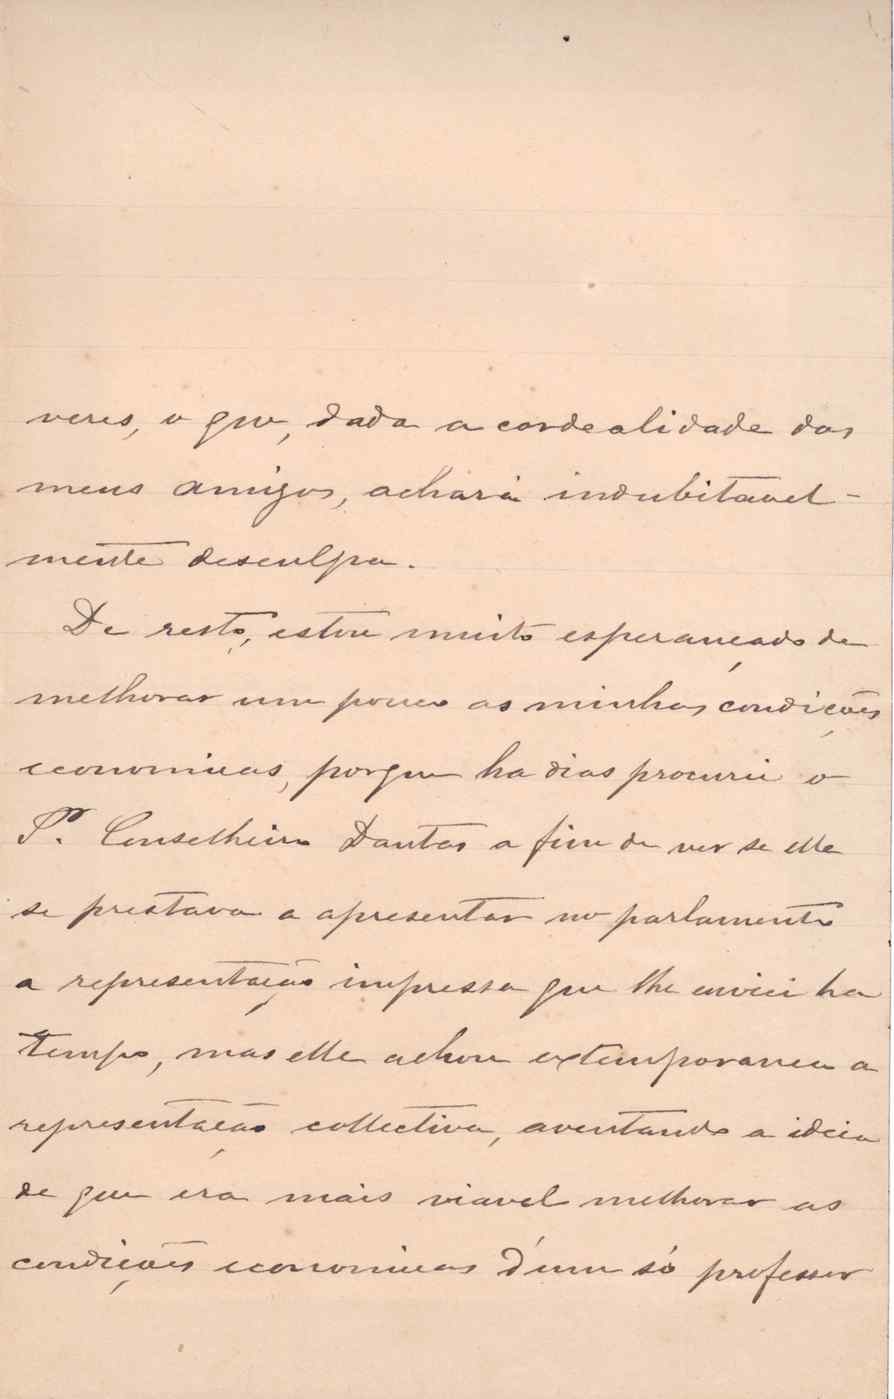 veres, o que, dada a cordealidade dos
meus amigos, achará indubitavel-
mente desculpa.
De resto, estou muito esperançado de
melhorar um pouco as minhas condições
economicas, porque ha dias procurei o
Sr. Conselheiro Dantas a fim de ver se elle
se prestava a apresentar no parlamento
a representação impressa que lhe enviei ha
tempo, mas elle achou extemporanea a
representação collectiva, aventando a ideia
de que era mais viavel melhorar as
condições economicas d'um só professor